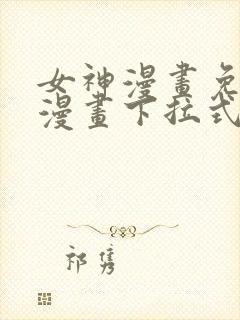 女神漫畫免
漫畫下拉式
祁隽